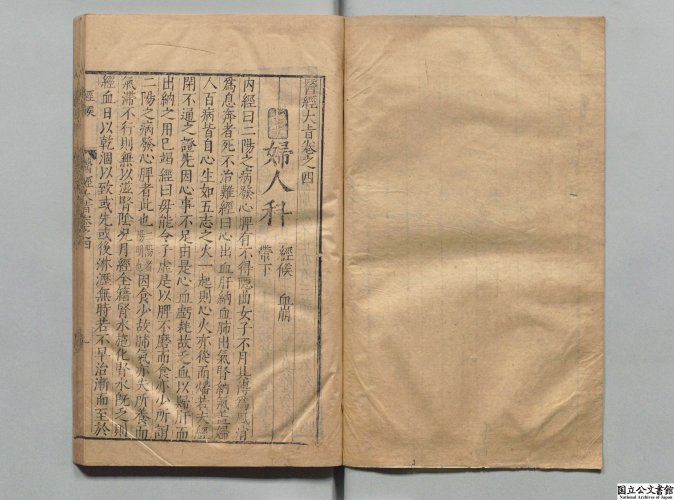 醫經大旨卷之四
婦人科
經候 血崩
帶下
內經曰二陽之病發心脾有不得隱曲女子不月其傳爲風消
爲息奔者死不治難經曰心出血肝納血肺出氣腎納氣 婦
人百病皆自心生如五志之火一起則心火亦從而燔若夫經
閉不通之證先因心事不足由是心血虧耗故乏血以歸肝而
出納之用已竭經曰母能令子虛是以脾不磨而食亦少所謂
二陽之病發心脾者此也二陽者陽明也因食少故肺氣亦失所養而
氣滯不行則無以滋腎陰況月經全藉腎水施化腎水旣乏則
經血日以乾涸以致或先或後淋瀝無時若不早治漸而至於
經候
醫經大旨卷之四
国立公文書館
National Archives of Japan